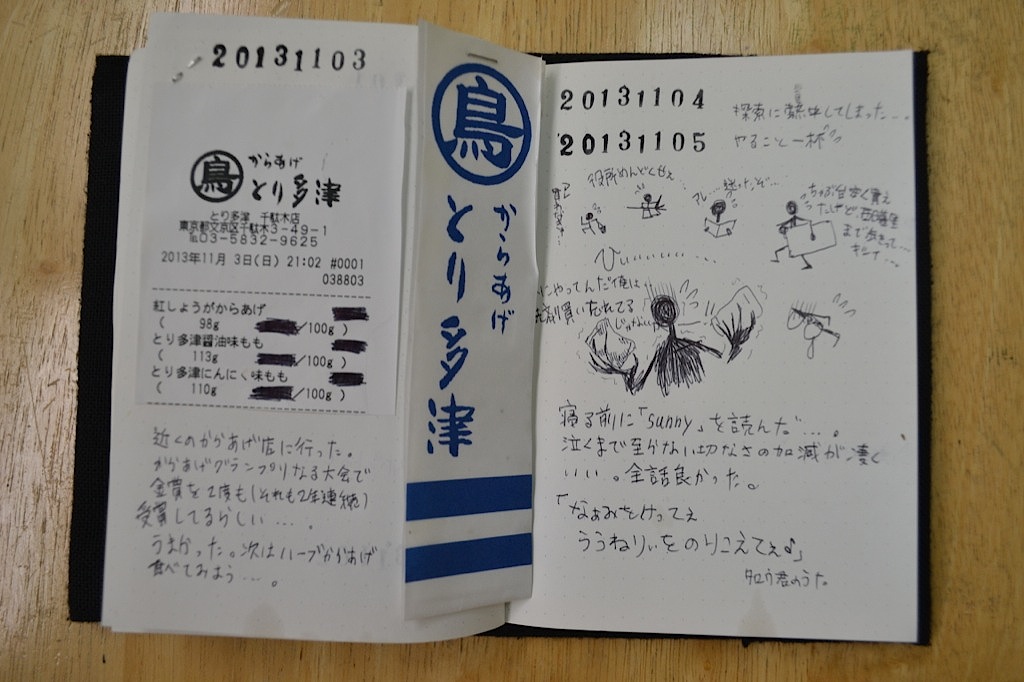 20131103
鳥
からあげ
とり多津
とり多津 千駄木店
東京都文京区千駄木3-49-1
℡03-5832-9625
2013年11月 3日(日) 21:02 #0001
038803
紅しょうがからあげ
( 98g /100g )
とり多津醤油味もも
( 113g /100g )
とり多津にんにく味もも
( 110g /100g )
近くのからあげ店に行った。
からあげグランプリなる大会で
金賞を2度も(それも2年連続)
受賞してるらしい…。
うまかった。次はハーブからあげ
食べてみよう…。
鳥
からあげ
とり多津
20131104
探索に熱中してしまった…。
20131105
やること一杯
役所めんどくせぇ
アレ…迷ったぞ…
ちゃぶ台安く買え
たけど、西日暮里
まで歩きって…
キシィ…。
ひぃぃぃぃぃ…
にやってんだ俺は
洗剤買い忘れてる
じゃない
寝る前に「sunny」を読んだ…。
泣くまで至らない切なさの加減が凄く
いい。全話良かった。
「なぁみをけってぇ
ううねりぃをのりこえてぇ♪」
タロウ君のうた。